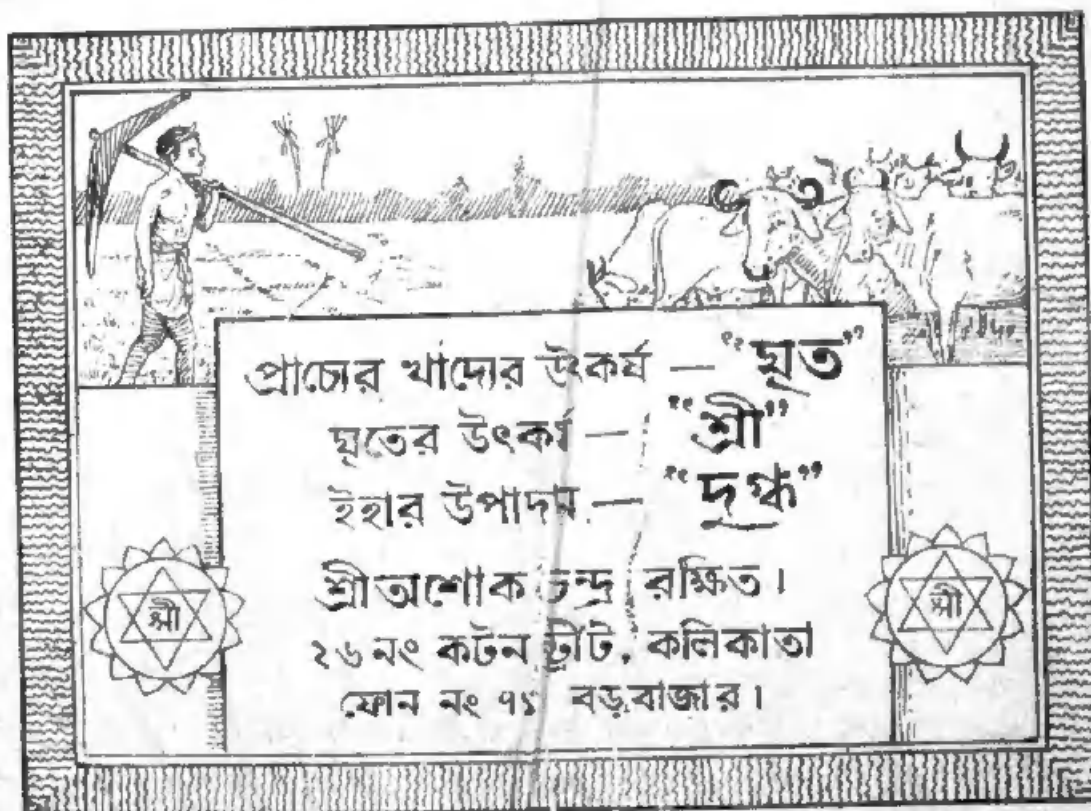 প্রাচ্যের খাদ্যের উৎকর্ষ — “ঘৃত”
ঘৃতের উৎকর্ষ — “শ্রী”
ইহার উপাদান — “দুগ্ধ”
শ্রীঅশোক চন্দ্র রক্ষিত।
২৬ নং কটন ষ্ট্রীট, কলিকাতা
ফোন নং ৭১ বড়বাজার।
শ্রী
শ্রী